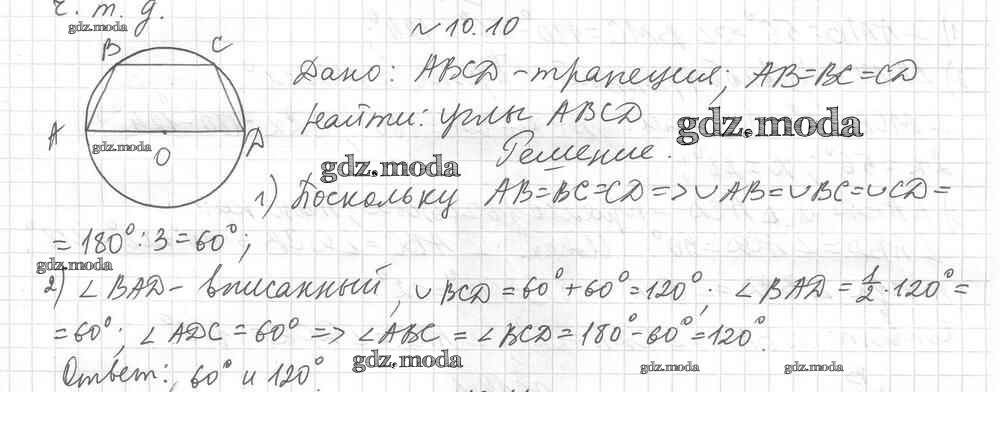 ч. т. д.
gdz.moda
№ 10.10
B C
Дано: ABCD - трапеция; AB=BC=CD
Найти: углы ABCD
A D
O
gdz.moda
gdz.moda
gdz.moda
Решение.
1) Поскольку AB=BC=CD => ∪AB=∪BC=∪CD=
= 180°:3=60°;
gdz.moda
2) ∠BAD - вписанный, ∪BCD = 60°+60°=120°; ∠BAD = 1/2 · 120° =
= 60°; ∠ADC = 60° => ∠ABC = ∠BCD = 180°-60°=120°.
gdz.moda
gdz.moda
gdz.moda
Ответ: 60° и 120°.